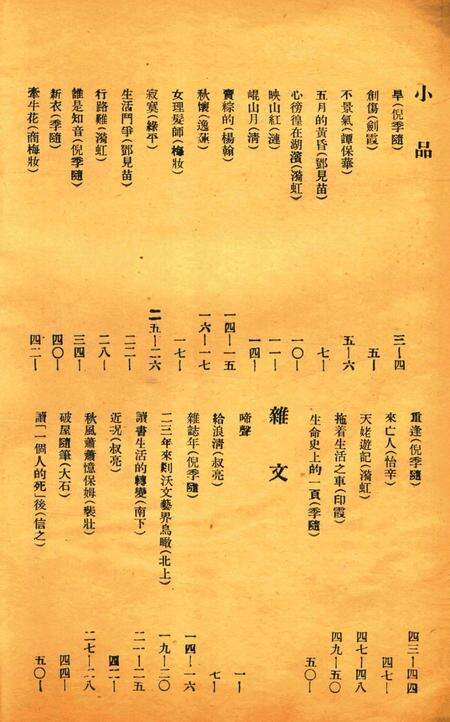 小品
旱(倪季隨) 三—四
創傷(劍霞) 五—
不景氣(譚保華) 五—六
五月的黃昏(鄧見苗) 七—
心徬徨在湖濱(漪虹) 一〇—
映山紅(漣) 一一—
崐山月(淸) 一四—
賣粽的(楊翰) 一四—一五
秋懷(逸蓮) 一六—一七
女理髮師(梅妝) 一七—
寂寞(綠平) 二五—二六
生活鬥爭(鄧見苗) 二二—
行路難(漪虹) 二八—
誰是知音(倪季隨) 三四—
新衣(季隨) 四〇—
牽牛花(商梅妝) 四二—
重逢(倪季隨) 四三—四四
來亡人(怡辛) 四七—
天姥遊記(漪虹) 四七—四八
拖着生活之車(印霞) 四九—五〇
生命史上的一頁(季隨) 五〇—
雜文
啼聲 一—
給浪淸(叔亮) 七—
雜誌年(倪季隨) 一四—一六
二三年來剡沃文藝界鳥瞰(北上) 一九—二〇
讀書生活的轉變(南下) 二一—二五
近況(叔亮) 四二—
秋風蕭蕭憶保姆(裝壯) 二七—二八
破屋隨筆(大石) 四四—
讀「一個人的死」後(信之) 五〇—